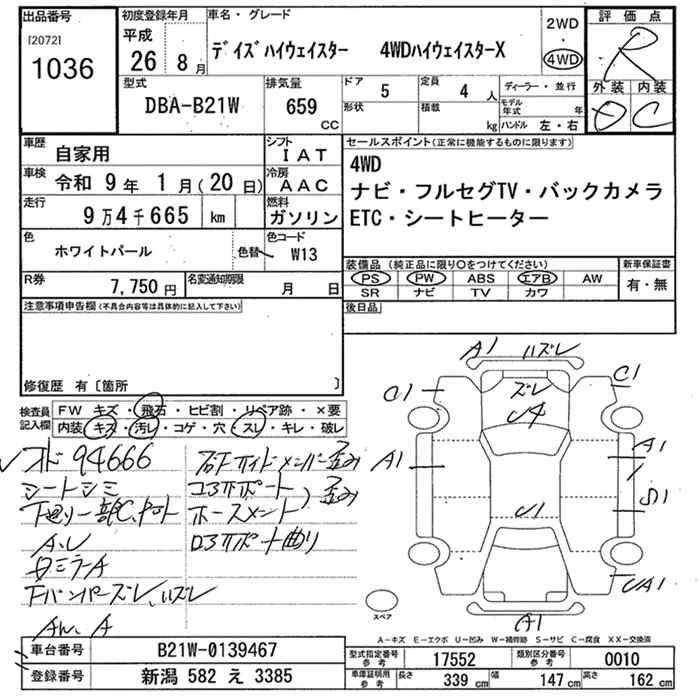 出品番号 初度登録年月 車名・グレード 評価点
[2072] 平成 2WD
1036 26 8月 デイズハイウェイスター 4WDハイウェイスターX 4WD R
型式 排気量 ドア 定員 ディーラー・並行 外装 内装
DBA-B21W 659 CC 5 4人 モデル年式 年 D C
形状 積載 kg ハンドル 左・右
車歴 自家用 シフト IAT セールスポイント(正常に機能するものに限ります)
車検 令和 9年 1月(20日) 冷房 AAC 4WD
走行 9万4千665 km 燃料 ガソリン ナビ・フルセグTV・バックカメラ
ETC・シートヒーター
色 ホワイトパール 色替 色コード W13
R券 7,750円 名変通知期限 月 日
装備品(純正品に限り○をつけてください) 新車保証書
PS PW ABS エアB AW 有・無
SR ナビ TV カワ
注意事項申告欄(不具合内容等は具体的に記入して下さい) 後日品
修復歴 有〔箇所 〕
検査員記入欄 FW キズ・飛石・ヒビ割・リペア跡・×要
内装・キズ・汚レ・コゲ・穴・スレ・キレ・破レ
94666
シートシミ
下廻り一部C、
A、U
ミラーA
Fバンパーズレ、ハズレ
サイドメンバー歪み
コアサポート 歪み
ホースメント
ロアサポート曲り
A1 ハズレ
ズレ
U4
C1
A1
A1
U1
A1
UA1
A1
スペア
A-キズ E-エクボ U-凹み W-補修跡 S-サビ C-腐食 XX-交換済
車台番号 B21W-0139467 型式指定番号 参考 17552 類別区分番号 参考 0010
登録番号 新潟 582 え 3385 車庫証明用 参考 長さ 339 cm 幅 147 cm 高さ 162 cm